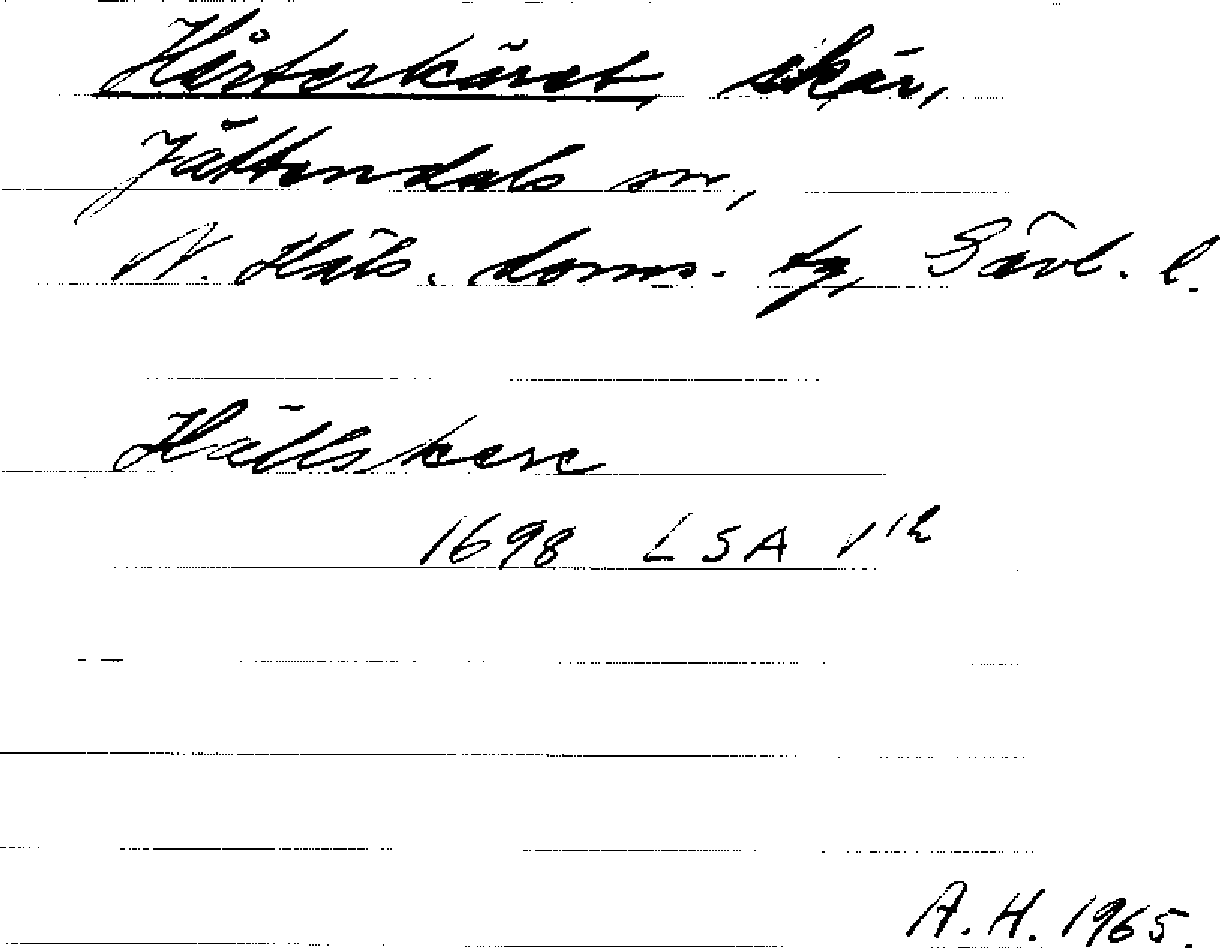 Hårtaskäret, skär,
Jättendals sn,
N. Häls. doms. tg, Gävl. l.
Hällskere
1698 LSA V 12
A. H. 1965.